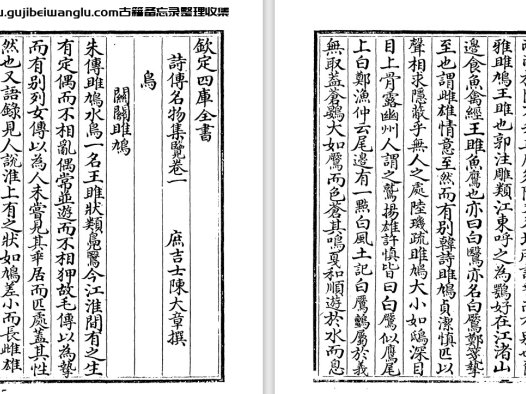 .gujibeiwanglu.com古籍备忘录整理收集
欽定四庫全書
詩傳名物集覽卷一
庶吉士陳大章撰
鳥
關關雎鳩
朱傳雎鳩水鳥一名王雎狀類鳧鷖今江淮間有之生
有定偶而不相亂偶常並遊而不相狎故毛傳以為摯
而有别列女傳以為人未嘗見其乘居而匹處蓋其性
然也又語錄見人說淮上有之狀如鳩差小而長雌雄
雅雎鳩王雎也郭注雕類江東呼之為鶚好在江渚山
邊食魚禽經王雎魚鷹也亦曰白鷢亦名白鷹鄭箋摯
至也謂雌雄情意至然而有别韓詩雎鳩貞潔慎匹以
聲相求隱蔽乎無人之處陸璣疏雎鳩大小如鴟深目
目上骨露幽州人謂之鷲揚雄許慎皆曰白鷢似鷹尾
上白鄭漁仲云尾邊有一點白風土記白鷹鸇屬於義
無取蓋蒼鷃大如鷹而色蒼其鳴戛和順遊於水而息